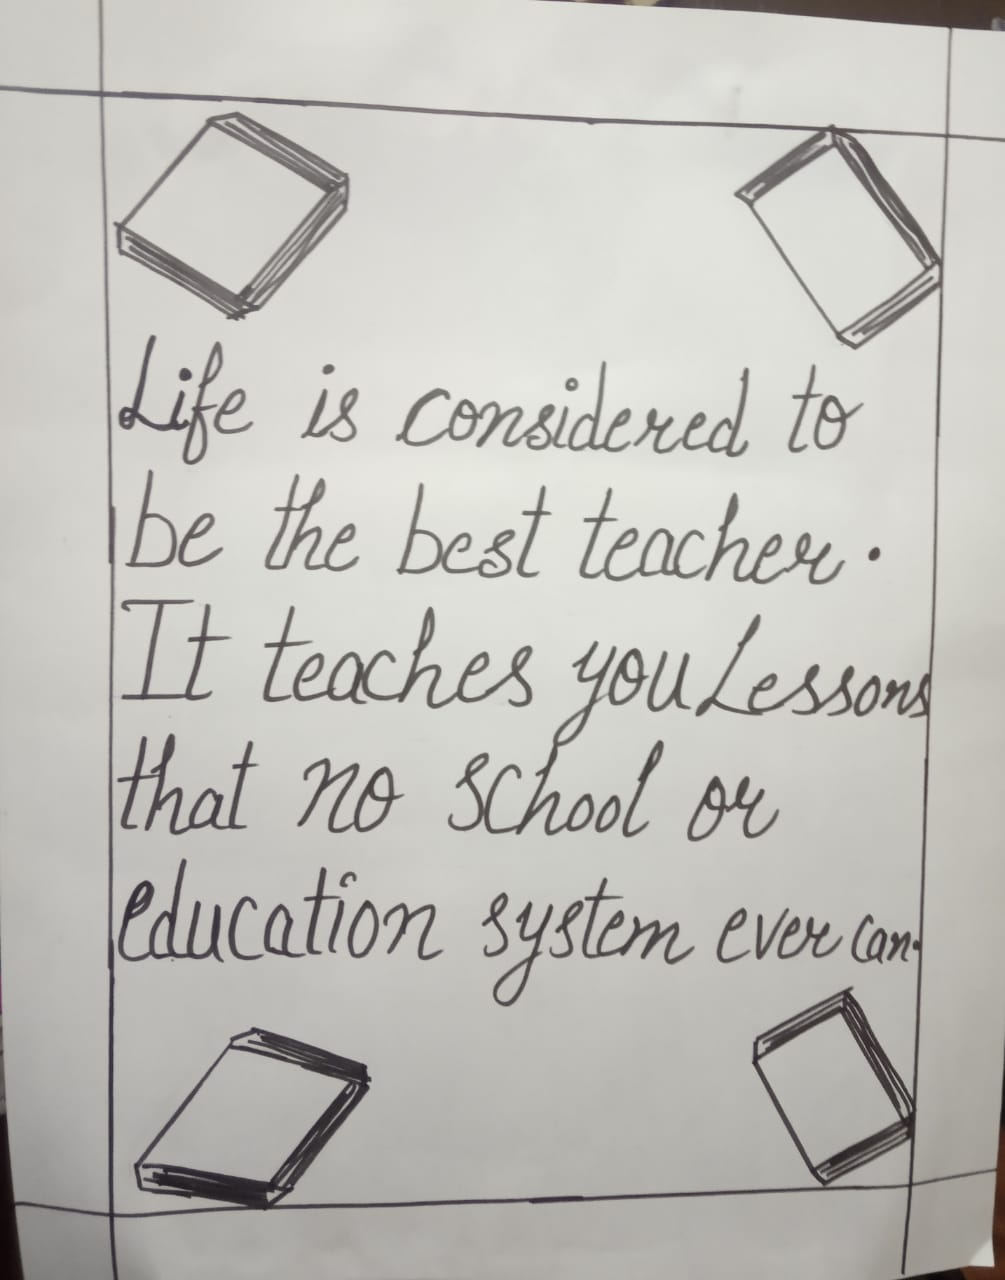 Life is considered to
be the best teacher.
It teaches you Lessons
that no school or
education system ever can.